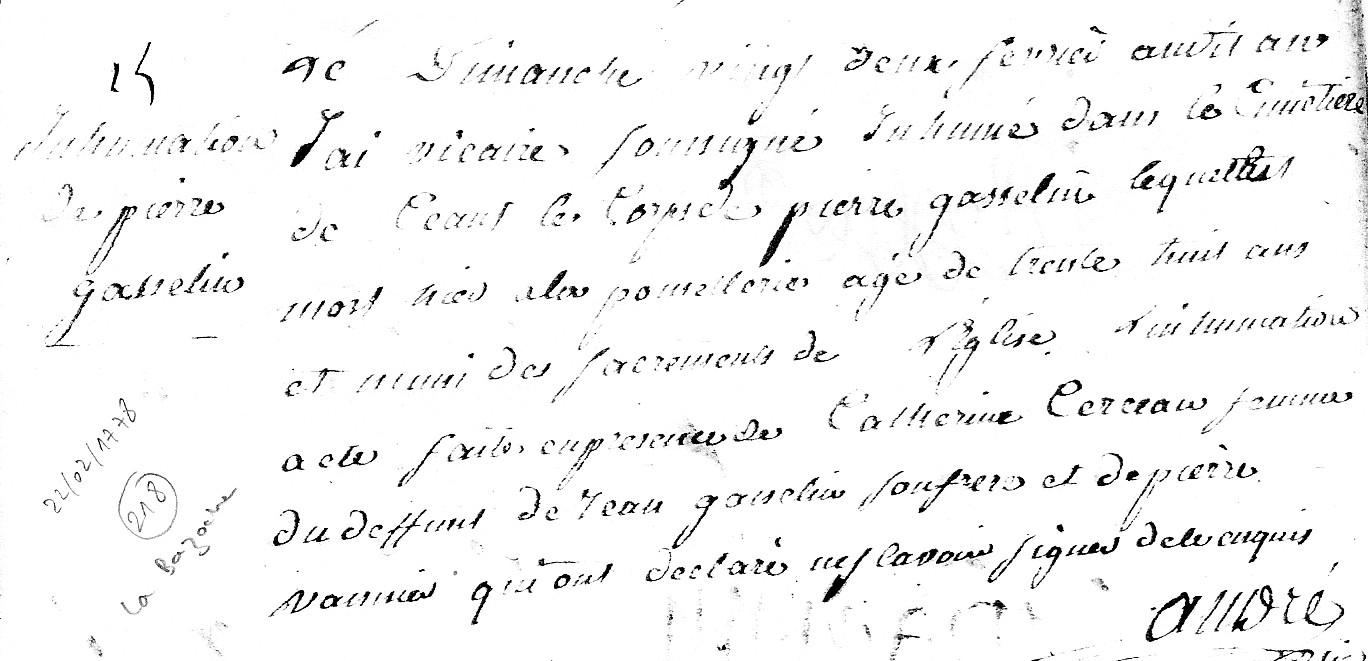 15
Inhumation
de pierre
gasselin
22/02/1778
218
la Bazoche
Le Dimanche vingt deux fevrier audit an
J'ai vicaire soussigné Inhumé dans le Cimetiere
de Ceans le Corps de pierre gasselin lequel est
mort hier a la agé de trente huit ans
et muni des sacrements de L'église L'inhumation
acte faite en presence de Catherine Cerceau femme
du deffunt de Jean gasselin son frere et de pierre
vannier qui ont declaré ne scavoir signer de ce enquis
andré